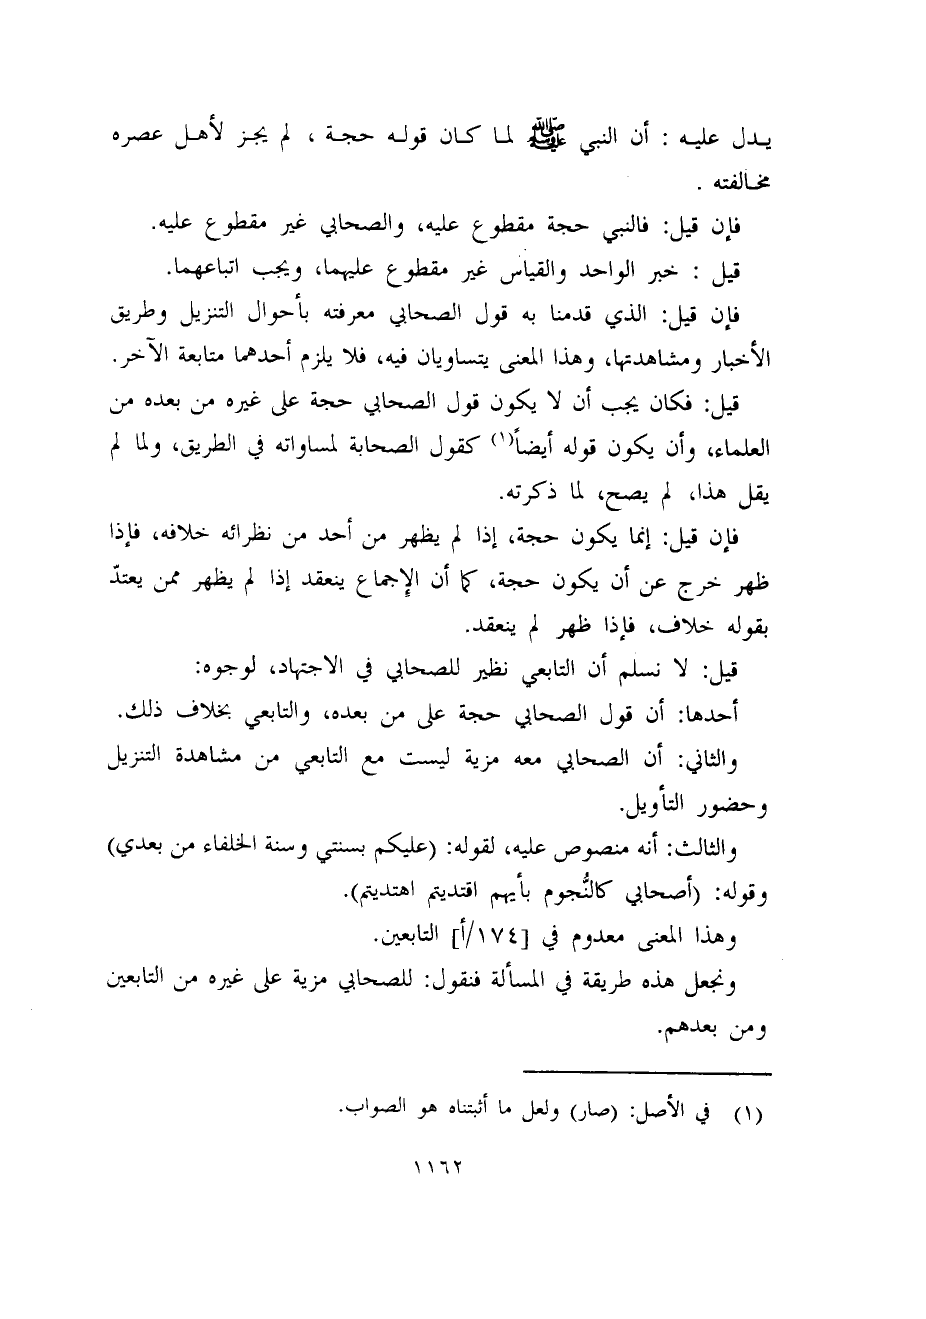 يدل عليه : أن النبي ﷺ لما كان قوله حجة ، لم يجز لأهل عصره
مخالفته .
فإن قيل: فالنبي حجة مقطوع عليه، والصحابي غير مقطوع عليه.
قيل : خبر الواحد والقياس غير مقطوع عليهما، ويجب اتباعهما.
فإن قيل: الذي قدمنا به قول الصحابي معرفته بأحوال التنزيل وطريق
الأخبار ومشاهدتها، وهذا المعنى يتساويان فيه، فلا يلزم أحدهما متابعة الآخر.
قيل: فكان يجب أن لا يكون قول الصحابي حجة على غيره من بعده من
العلماء، وأن يكون قوله أيضاً(١) كقول الصحابة لمساواته في الطريق، ولما لم
يقل هذا، لم يصح، لما ذكرته.
فإن قيل: إنما يكون حجة، إذا لم يظهر من أحد من نظرائه خلافه، فإذا
ظهر خرج عن أن يكون حجة، كما أن الإجماع ينعقد إذا لم يظهر ممن يعتدّ
بقوله خلاف، فإذا ظهر لم ينعقد.
قيل: لا نسلم أن التابعي نظير للصحابي في الاجتهاد، لوجوه:
أحدها: أن قول الصحابي حجة على من بعده، والتابعي بخلاف ذلك.
والثاني: أن الصحابي معه مزية ليست مع التابعي من مشاهدة التنزيل
وحضور التأويل.
والثالث: أنه منصوص عليه، لقوله: (عليكم بسنتي وسنة الخلفاء من بعدي)
وقوله: (أصحابي كالنُّجوم بأيهم اقتديتم اهتديتم).
وهذا المعنى معدوم في [١٧٤/أ] التابعين.
ونجعل هذه طريقة في المسألة فنقول: للصحابي مزية على غيره من التابعين
ومن بعدهم.
(١) في الأصل: (صار) ولعل ما أثبتناه هو الصواب.
١١٦٢